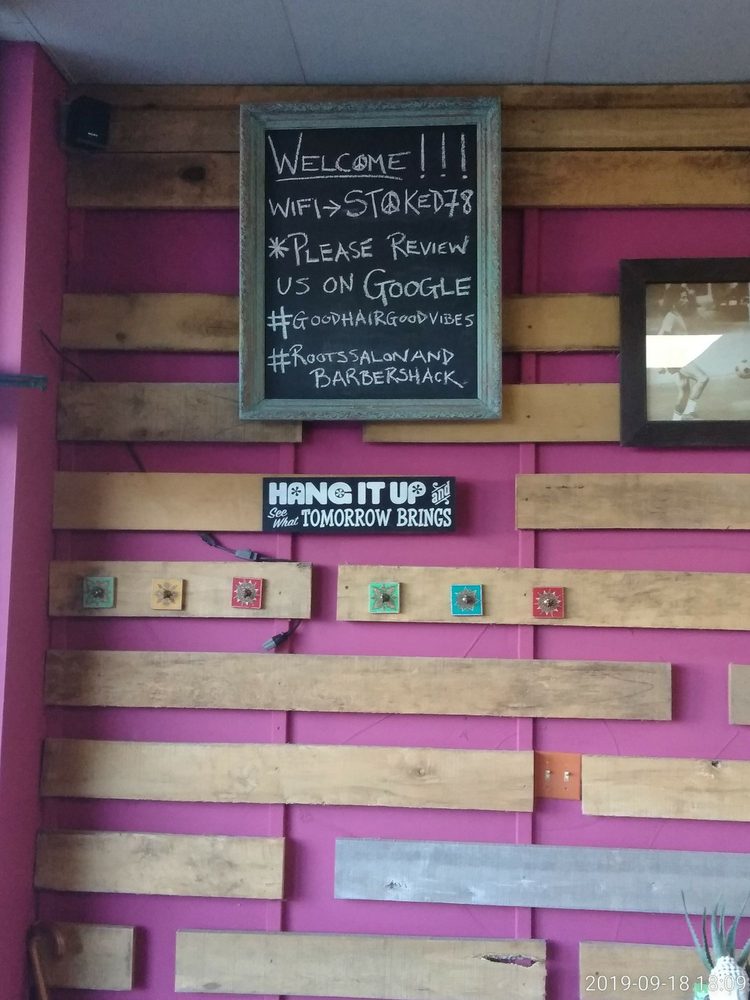 WELCOME!!!
WIFI→STOKED78
*PLEASE REVIEW
US ON GOOGLE
#GOODHAIRGOODVIBES
#ROOTSSALONAND
BARBERSHACK
HANG IT UP and
See What TOMORROW BRINGS
2019-09-18 18:09